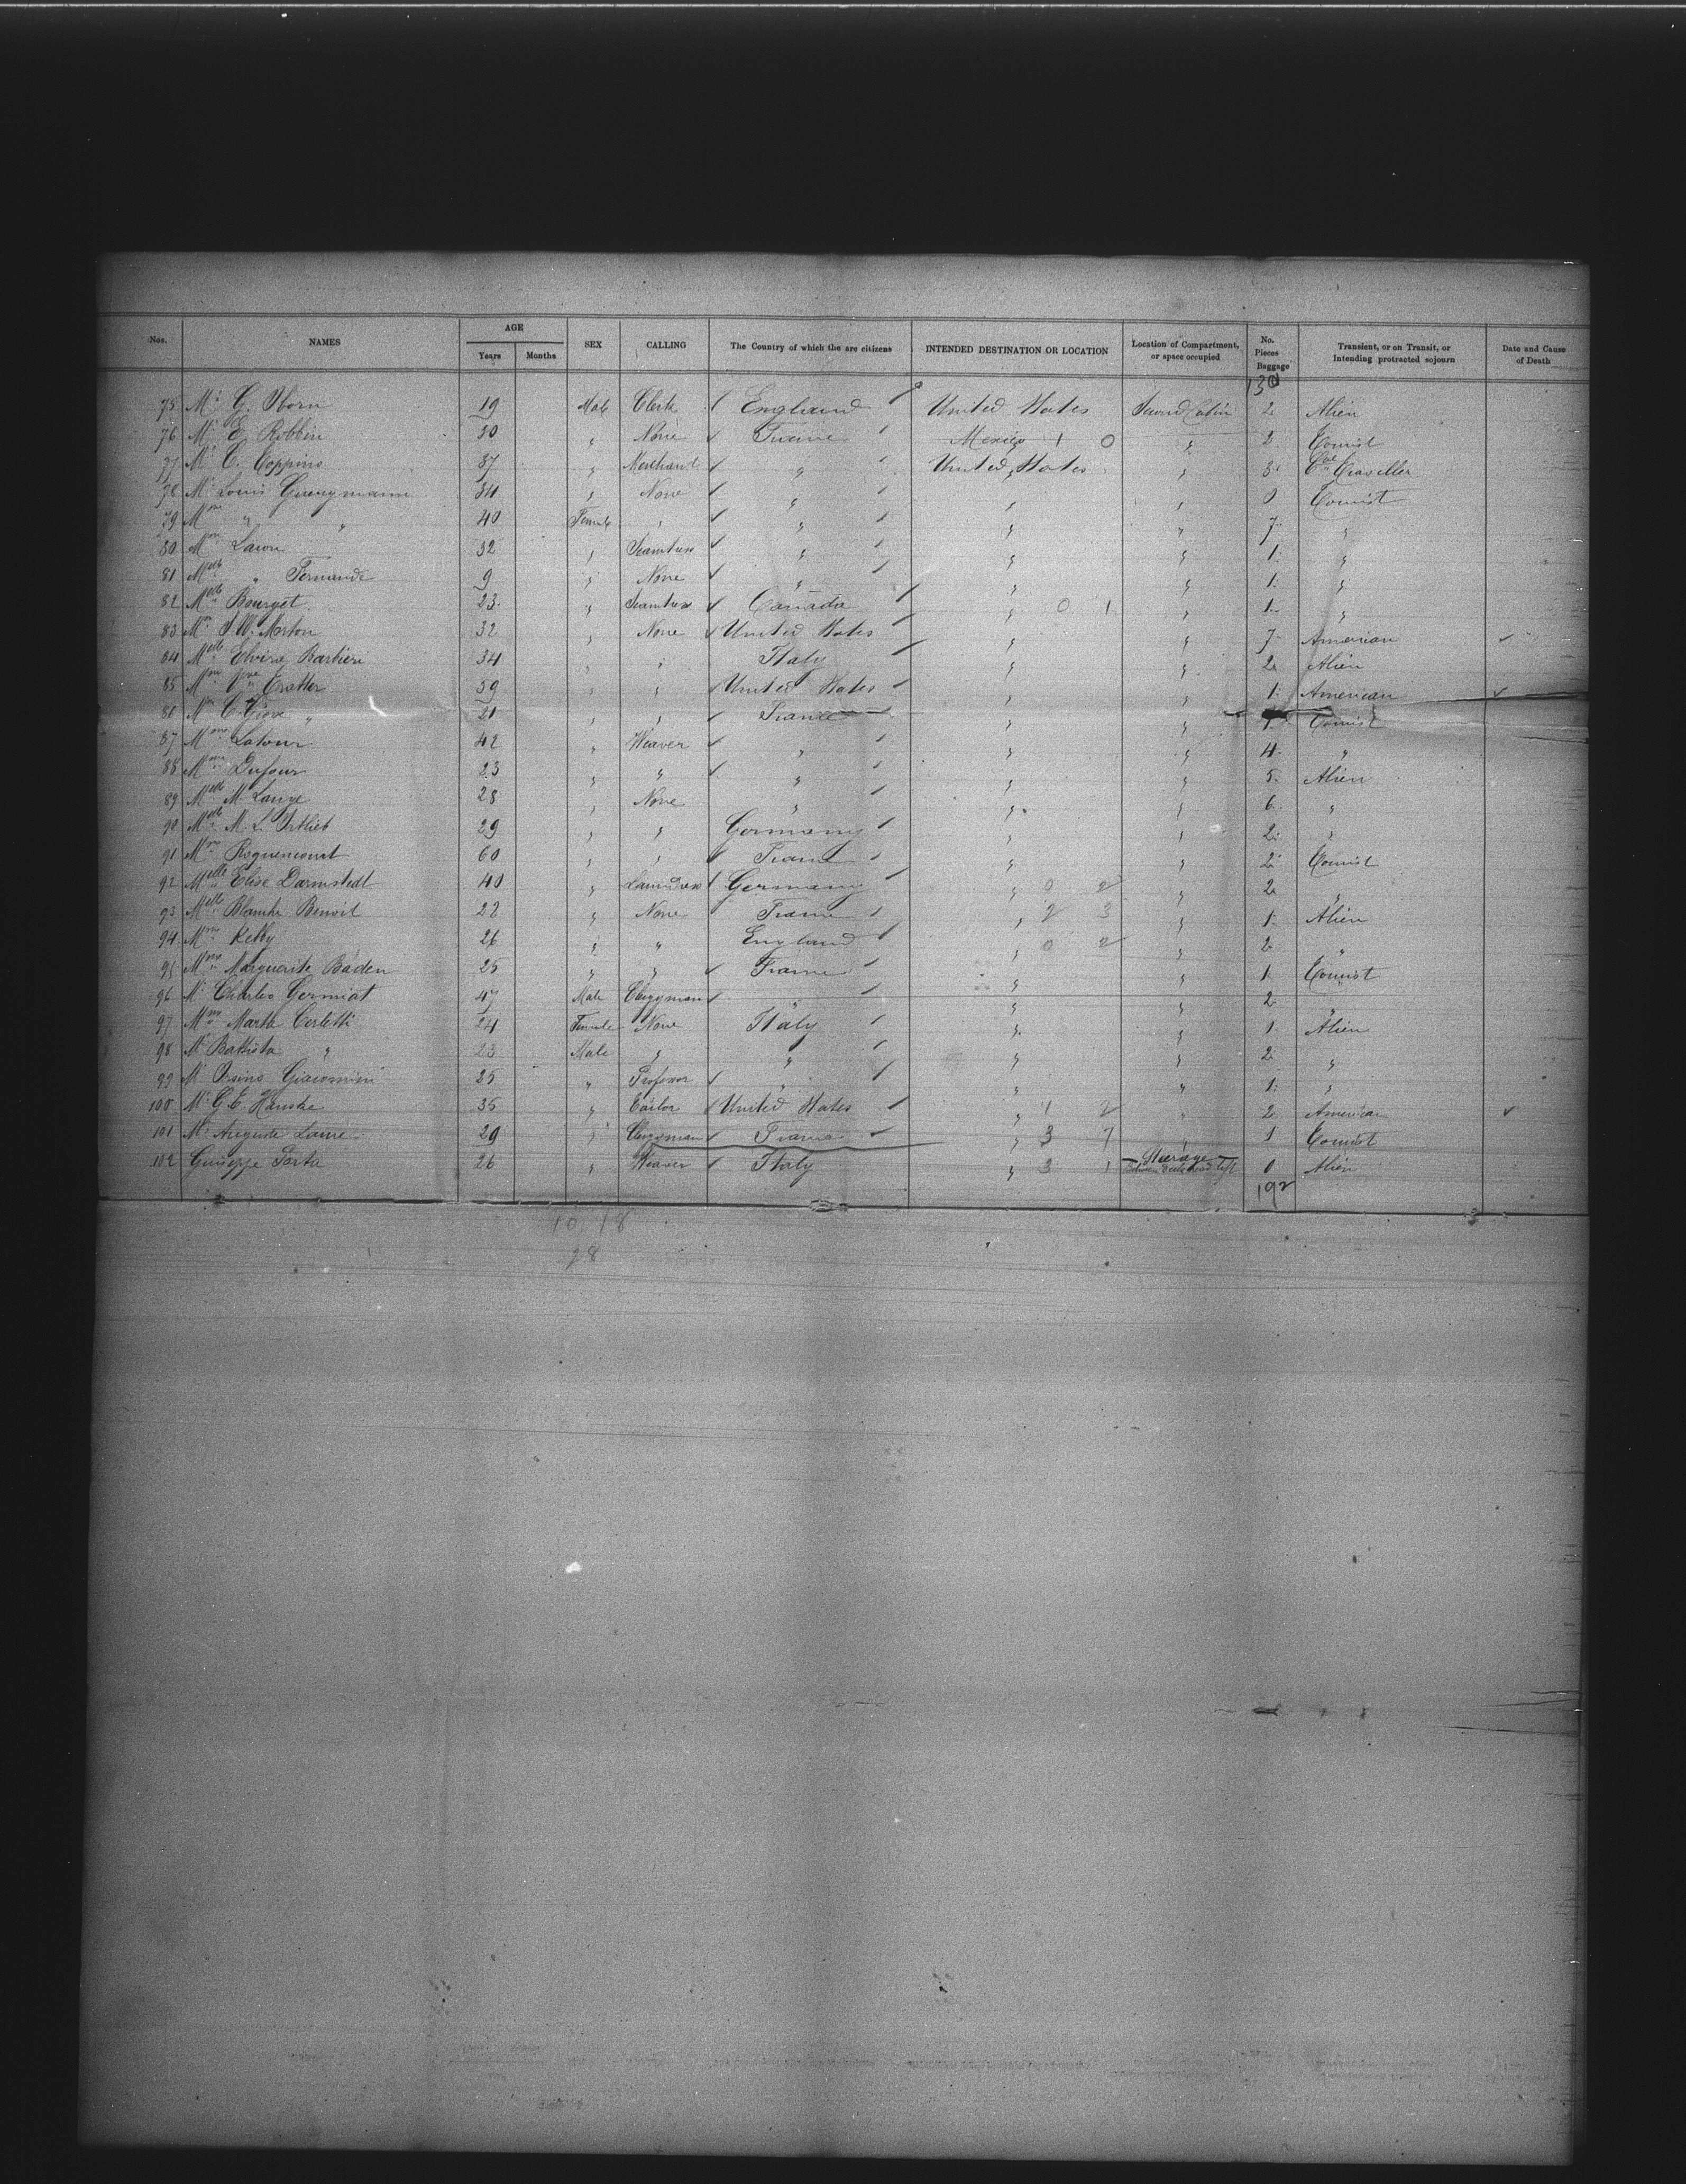 Nos. NAMES AGE Years Months SEX CALLING The Country of which the are citizens INTENDED DESTINATION OR LOCATION Location of Compartment, or space occupied No. Pieces Baggage Transient, or on Transit, or Intending protracted sojourn Date and Cause of Death
130
75 Mr G. 19 Male Clerk England United States Second Cabin 2 Alien
76 Mr E. Robbin 30 " None France Mexico 1 0 " 2 Tourist
77 Mr C. Coppins 37 " Merchant " United States " 3 Traveller
78 Mr Louis 34 " None " " " Tourist
79 Mme " " 40 Female " " " " 7 "
80 Mme 32 " Seamtress " " " 1 "
81 Melle " Fernande 9 " None " " " 1 "
82 Melle Bourget 23 " Seamtress Canada " 0 1 " 1 "
83 W. Morton 32 " None United States " " 7 American
84 Melle Elvira Barbieri 34 " " Italy " " 2 Alien
85 Mme Vve 39 " " United States " " 1 American
86 " 21 " " France " " Tourist
87 Mme Latour 42 " Weaver " " " 4 "
88 Mme Dufour 23 " " " " " 5 Alien
89 Melle M. Lange 28 " None " " " 6 "
90 Melle M. L. Ortlieb 29 " " Germany " " 2 "
91 Mme Roquencourt 60 " " France " " 2 Tourist
92 Melle Elise Darmstedt 40 " Laundress Germany " 0 2 " 2 "
93 Melle Blanche Benoit 22 " None France " 2 3 " 1 Alien
94 Mme Kelby 26 " " England " 0 2 " 2 "
95 Mme Marguerite Baden 25 " " France " " 1 Tourist
96 Mr Charles Germiat 47 Male Clergyman " " " 2 "
97 Mme Marta Cerletti 24 Female None Italy " " 1 Alien
98 Mr Battista " 23 Male " " " " 2 "
99 Mr Giacomini 25 " Profesor " " " 1 "
100 Mr G. E. Hanske 35 " Tailor United States " 1 2 " 2 American
101 Mr Auguste 29 " Clergyman France " 3 7 " 1 Tourist
102 Giuseppe 26 " Weaver Italy " 3 1 Steerage 0 Alien
192
10 18
28